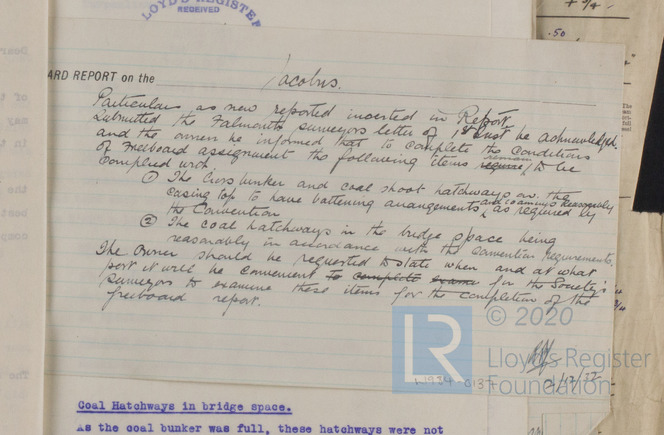 LLOYD'S REGISTER
RECEIVED
ARD REPORT on the Jacobus.
Particulars as now reported inserted in Report.
Submitted the Falmouth Surveyors letter of 1st inst be acknowledged.
and the owner be informed that to complete the conditions
of Freeboard assignment the following items remain to be
complied with
① The Cross bunker and coal shoot hatchways on the
casing top to have battening arrangements and coamings reasonably as required by
the Convention
② The coal hatchways in the bridge space being
reasonably in accordance with the Convention requirements.
The Owner should be requested to state when and at what
port it will be convenient to complete exami for the Society's
Surveyors to examine these items for the completion of the
freeboard report.
© 2020
LR
Lloyd's Register
Foundation
2/12/32
Coal Hatchways in bridge space.
As the coal bunker was full, these hatchways were not
.50